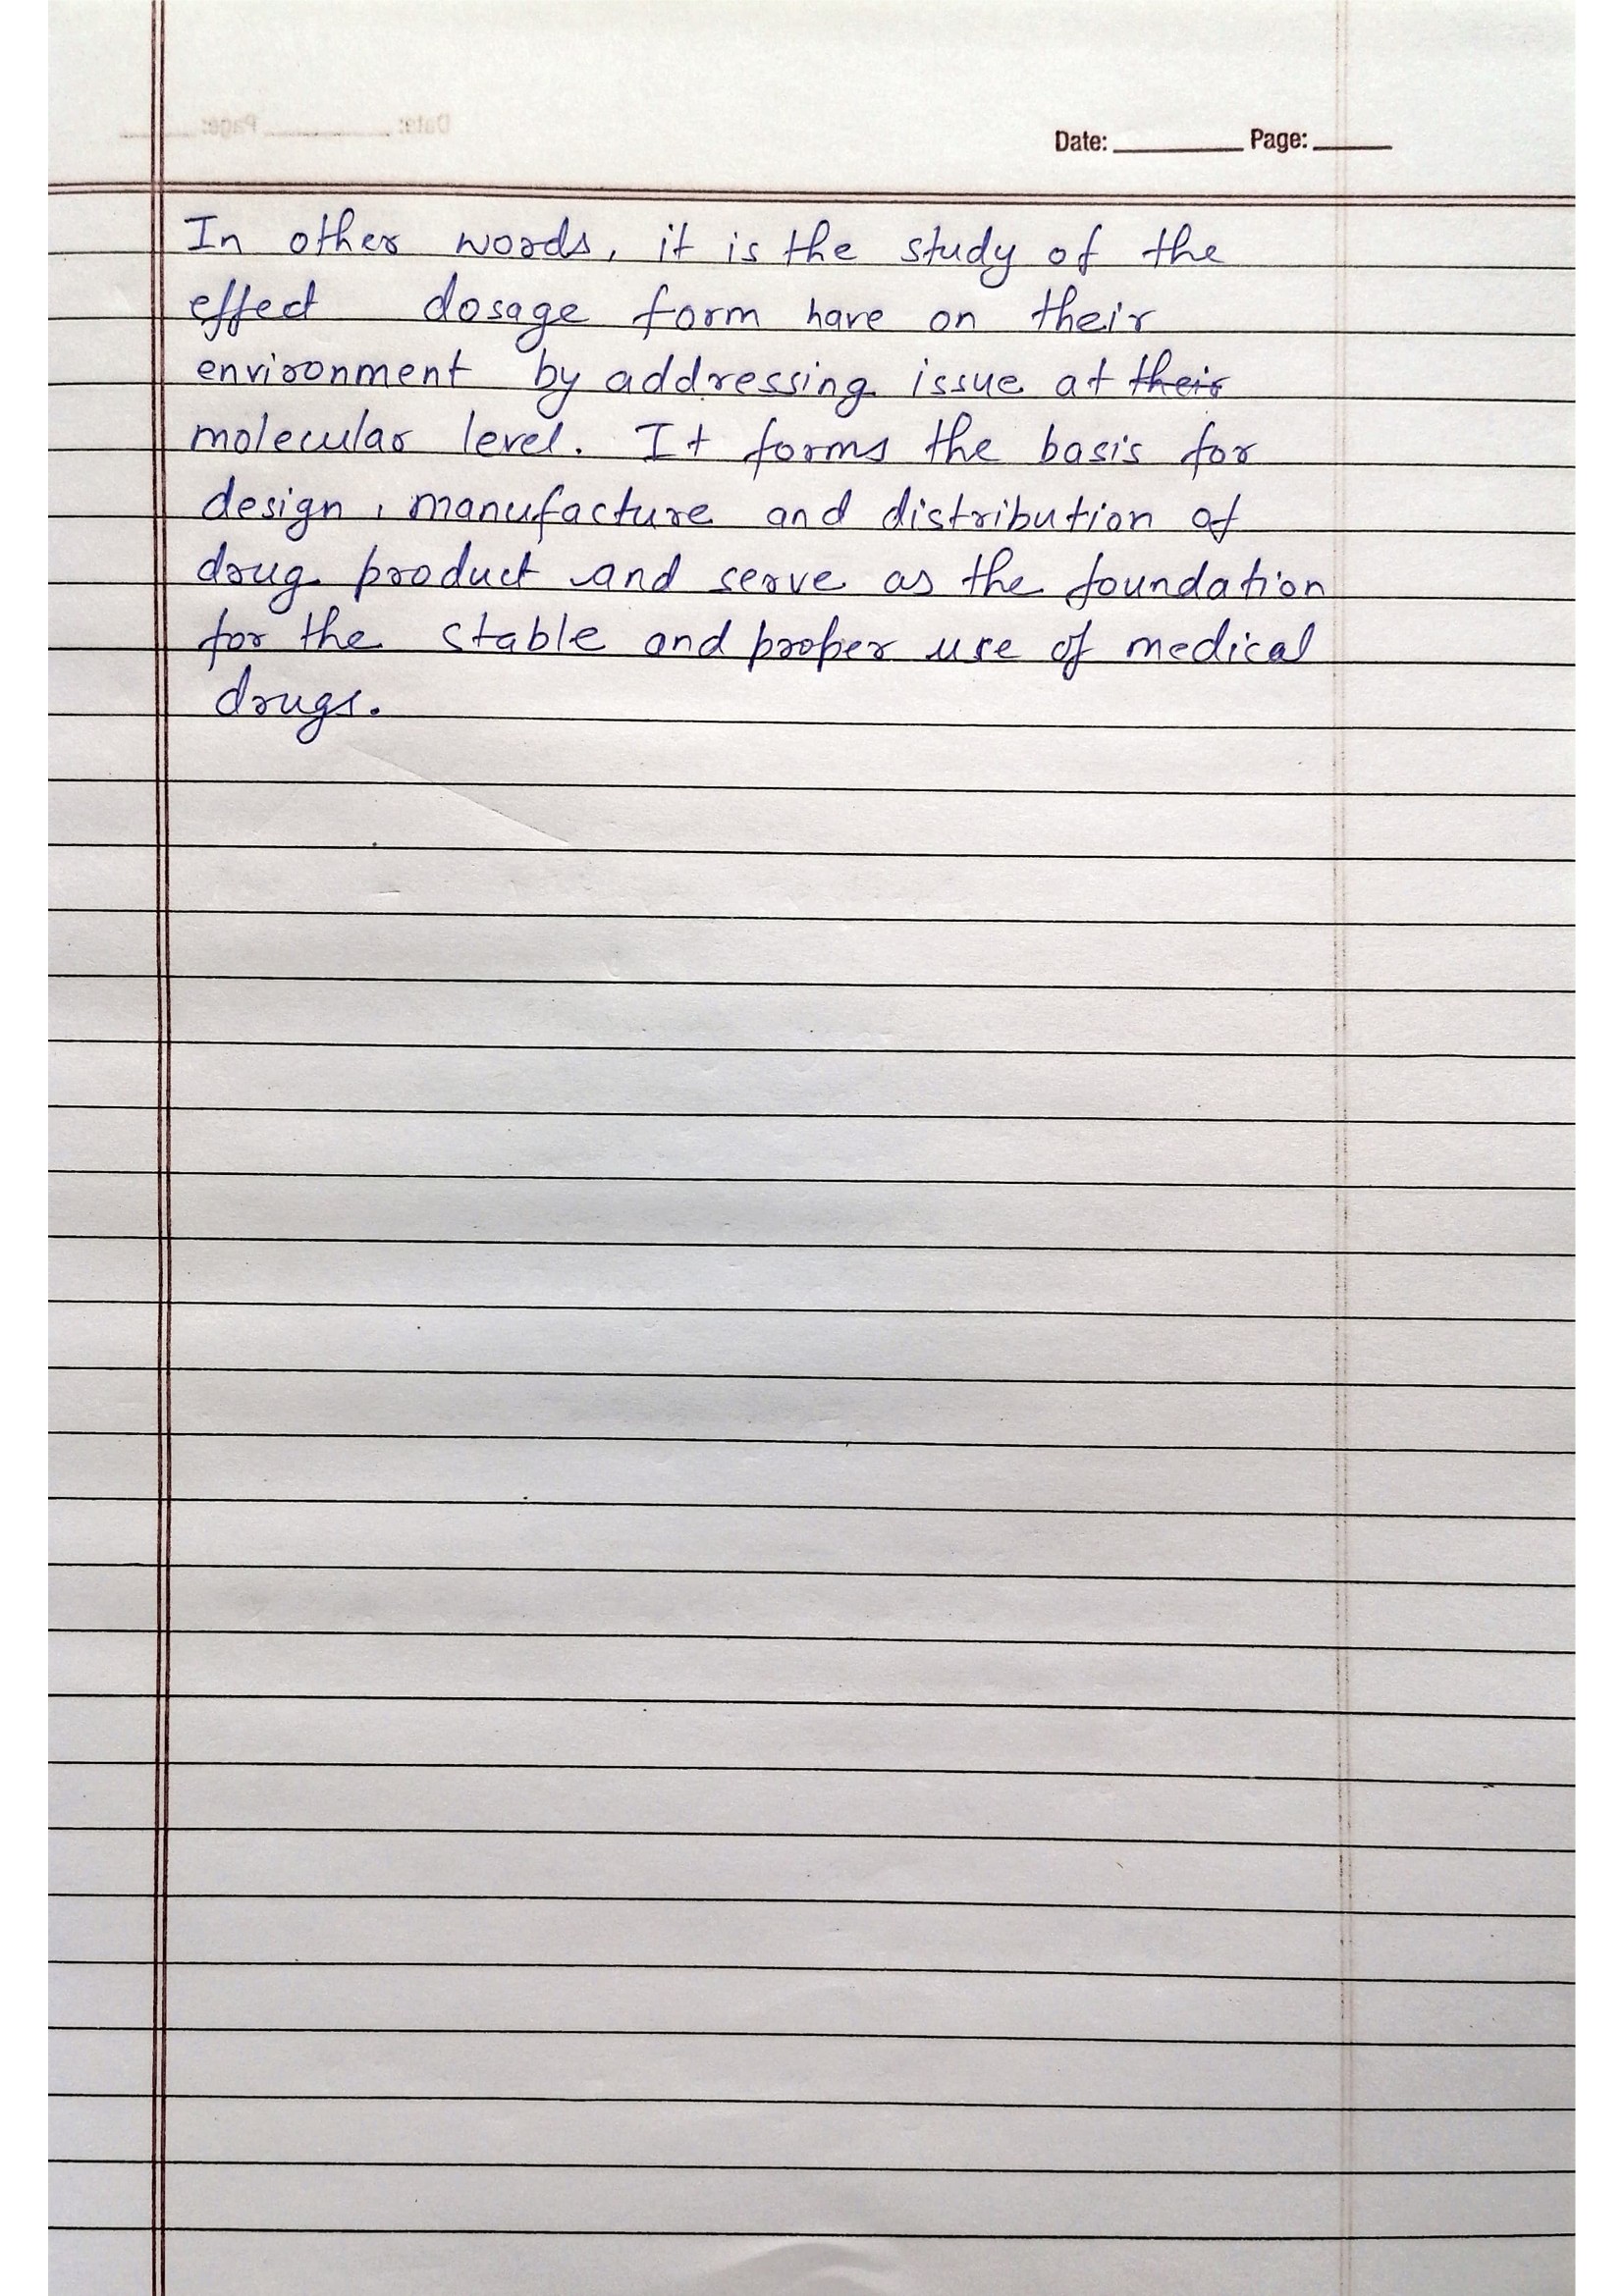 Date: Page:
In other words, it is the study of the
effect dosage form have on their
environment by addressing issue at ~~their~~
molecular level. It forms the basis for
design, manufacture and distribution of
drug product and serve as the foundation
for the stable and proper use of medical
drugs.